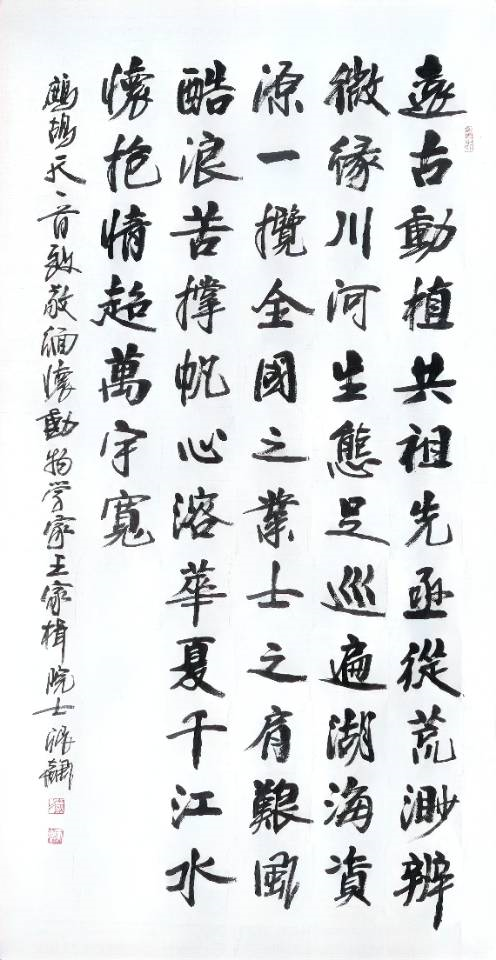 遠古動植共祖先亟從荒渺辨
微緣川河生態足巡遍湖海資
源一攬全國之業士之肩艱風
酷浪苦撑帆心溶華夏千江水
懷抱情超萬宇寬
鹧鸪天一首致敬缅懷動物学家王家楫院士張